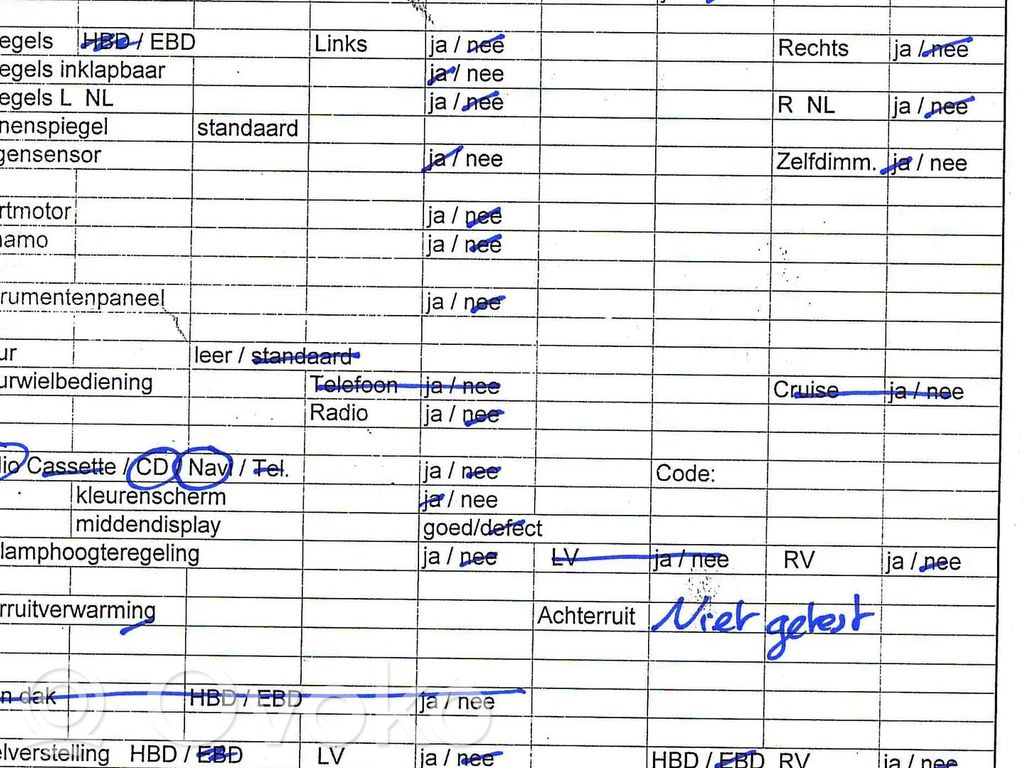 egels HBD / EBD Links ja / nee Rechts ja / nee
egels inklapbaar ja / nee
egels L NL ja / nee R NL ja / nee
nenspiegel standaard
gensensor ja / nee Zelfdimm. ja / nee
rtmotor ja / nee
namo ja / nee
rumentenpaneel ja / nee
ur leer / standaard
urwielbediening Telefoon ja / nee Cruise ja / nee
Radio ja / nee
dio Cassette / CD / Navi / Tel. ja / nee Code:
kleurenscherm ja / nee
middendisplay goed/defect
lamphoogteregeling ja / nee LV ja / nee RV ja / nee
rruitverwarming Achterruit Niet getest
n dak HBD / EBD ja / nee
Ovoko
elverstelling HBD / EBD LV ja / nee HBD / EBD RV ja / nee